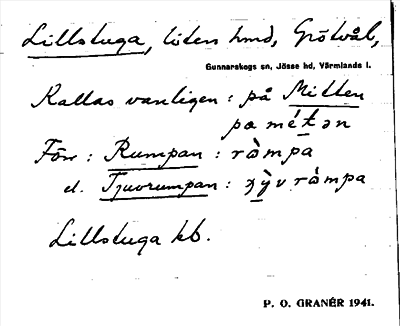 Lillstuga, liten hmd, Grötvål,
Gunnarskogs sn, Jösse hd, Värmlands l.
Kallas vanligen: på Mitten
pa métən
Förr: Rumpan: ràmpa
el. Tjuvrumpan:
Lillstuga kb.
P. O. GRANÉR 1941.